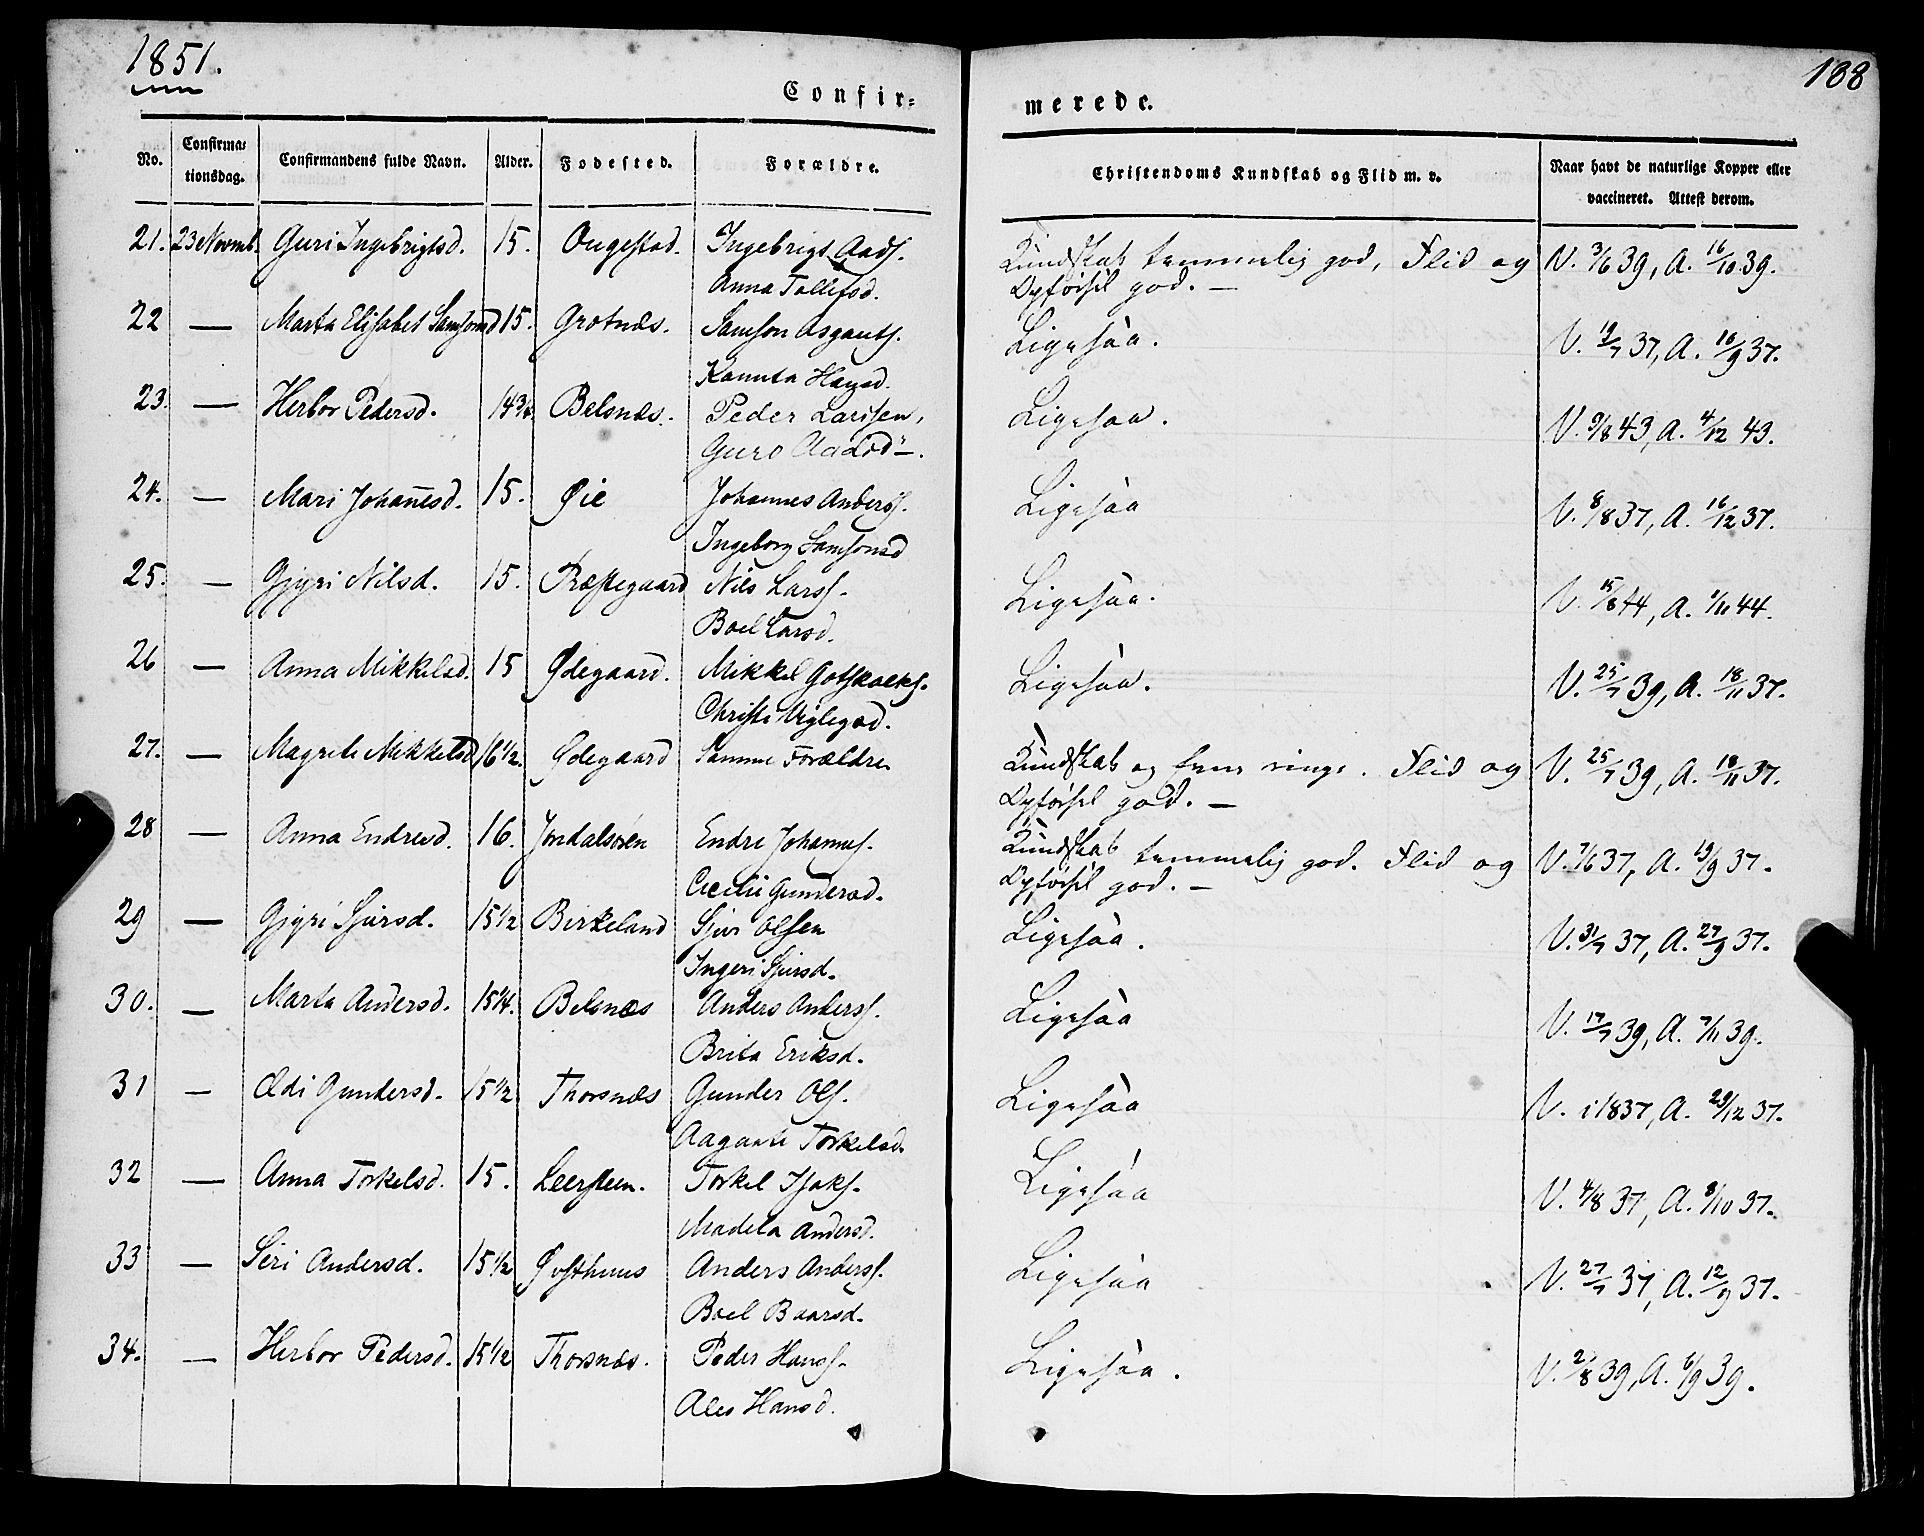 1851.
188
Confir=
merede.
No. Confirma= tionsdag. Confirmandens fulde Navn. Alder. Fødested. Forældre. Christendoms Kundskab og Flid m. v. Naar havt de naturlige Kopper eller vaccineret. Attest derom.
21. 23 Novmb. Guri Ingebrigtsd. 15. Ougestad. Ingebrigt Aads. Kundskab temmelig god, Flid og V. 3/6 39, A. 16/10 39.
Anna Tollefsd. Opførsel god. —
22 — Marta Elisabet Samsonsd 15. Grotnæs. Samson Asgauts. Ligesaa. V. 19/7 37, A. 16/9 37.
Kannta Hansd.
23. — Herbor Pedersd. 14 3/4 Belsnæs. Peder Larssen, Ligesaa. V. 9/8 43, A. 4/12 43.
Guro Aadsd —.
24. — Mari Johañesd. 15. Øie Johannes Anderss. Ligesaa V. 8/8 37, A. 16/12 37.
Ingeborg Samsonsd
25. — Gjyri Nilsd. 15. Præstegaard Nils Larss. Ligesaa. V. 15/8 44, A. 1/11 44.
Boel Larsd.
26 — Anna Mikkelsd. 15 Ødegaard. Mikkel Gotskalks. Ligesaa. V. 25/7 39, A. 18/11 37.
Christi Viglegsd.
27. — Magrete Mikkelsd 16 1/2. Ødegaard Samme Forældre Kundskab og Evne ringe. Flid og V. 25/7 39, A. 18/11 37.
Opførsel god. —
28 — Anna Endresd. 16. Jondalsøren Endre Johanness. Kundskab temmelig god. Flid og V. 7/6 37, A. 19/9 37.
Cecilie Gundersd. Opførsel god. —
29 — Gjyri Sjursd. 15 1/2 Birkeland Sjur Olsen Ligesaa. V. 31/7 37, A. 27/9 37.
Ingeri Sjursd.
30. — Marta Andersd. 15 1/4. Belsnæs Anders Anderss. Ligesaa V. 17/7 39, A. 7/11 39.
Brita Eriksd.
31 — Ædi Gundersd. 15 1/2 Thorsnæs Gunder Ols. Ligesaa V. i 1837, A. 29/12 37.
Aagaate Torkelsd.
32 — Anna Torkelsd. 15. Leersteen. Torkel Isaks. Ligesaa V. 4/8 37, A. 8/10 37.
Madela Andersd.
33 — Siri Andersd. 15 1/2 Øvsthuus Anders Anderss. Ligesaa V. 27/7 37, A. 12/9 37.
Boel Baarsd.
34. — Herbor Pedersd. 15 1/2 Thorsnæs. Peder Hanss. Ligesaa. V. 2/8 39, A. 6/9 39.
Ales Hansd.